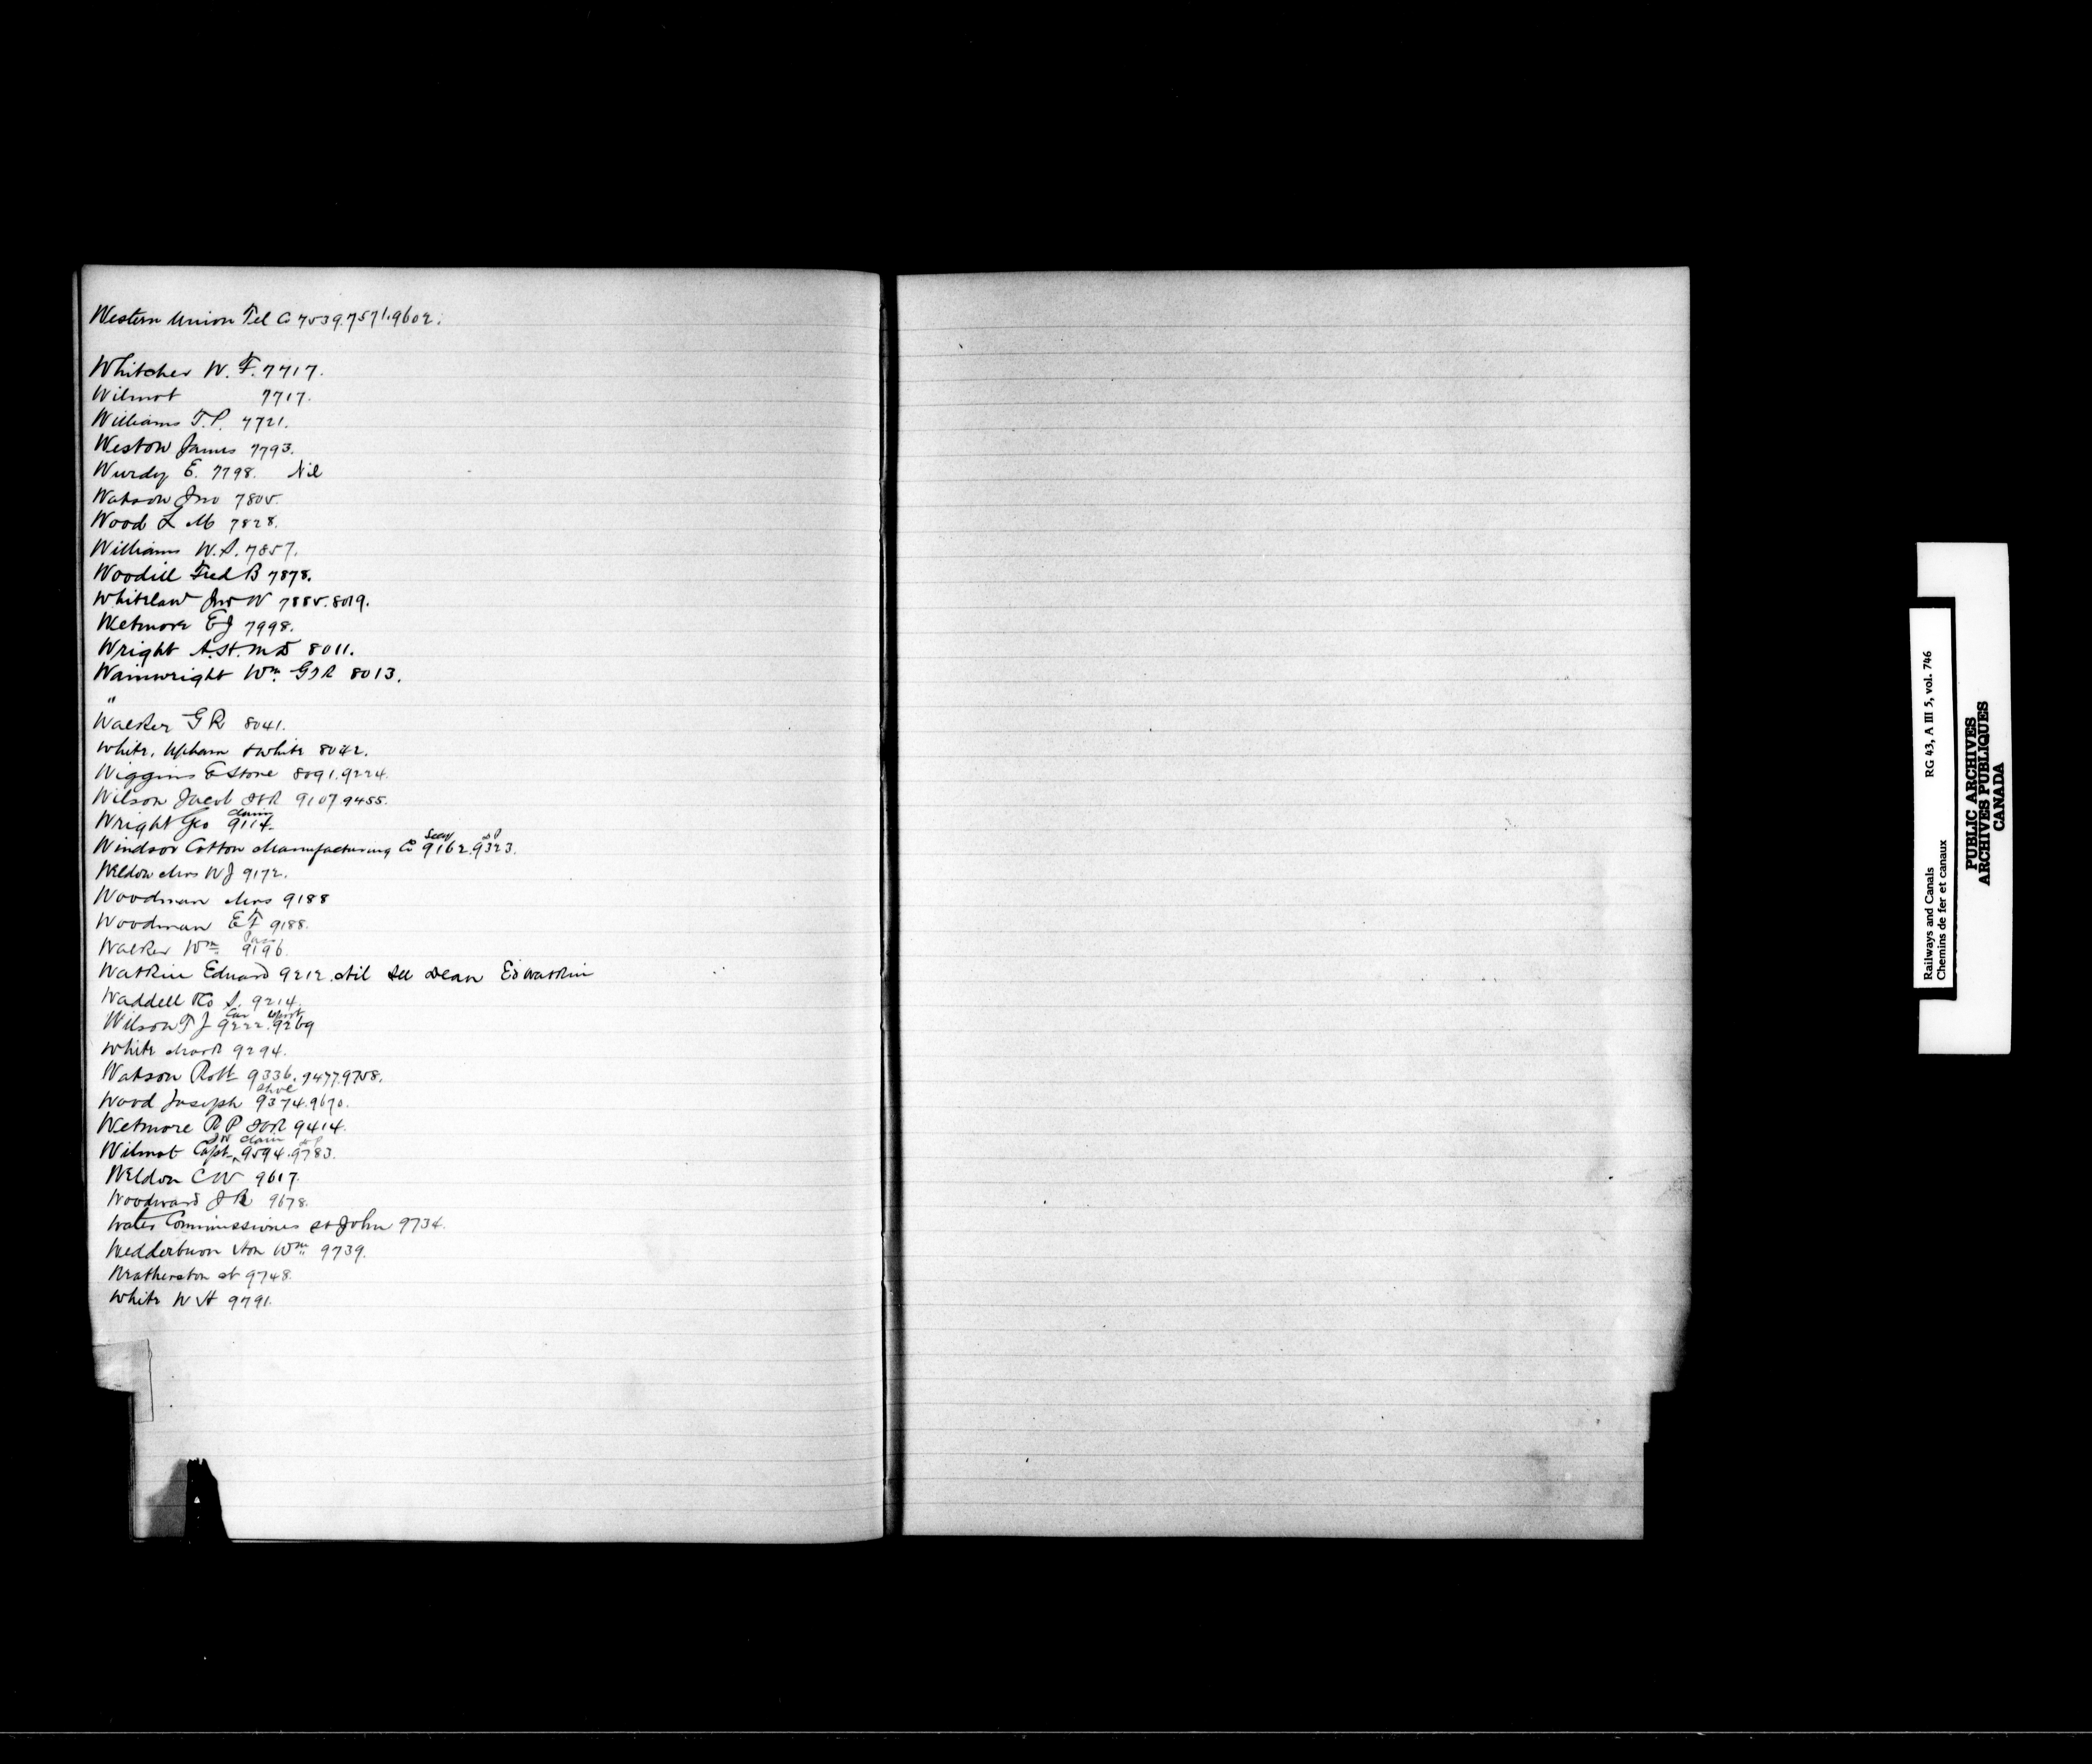 Western Union Tel Co 7539.7571.9602.
Whitcher W. F. 7717.
Wilmot 7717.
Williams T.P. 7721.
Weston James 7793.
Wurdy E. 7798. Nil
Watson Jno 7805.
Wood L M 7828.
Williams W.S. 7857.
Woodill Fred B 7878.
Whitelaw Jno W 7885.8019.
Wetmore E J 7998.
Wright A. St. 8011.
Wainwright Wm. GTR 8013.
"
Walker G R 8041.
White, Upham & White 8042.
Wiggins E Stone 8091.9224.
Wilson Jacob ICR 9107.9455.
claim
Wright Geo 9114.
Windsor Cotton Manufacturing Co 9162.9323.
Weldon Mrs W J 9172.
Woodman Mrs 9188
Woodman E F 9188.
Pass
Walker Wm 9196.
Watkin Edward 9212. Nil See Dean Ed Watkin
Waddell & Co S. 9214.
Wilson T J 9222.9269
White Mark 9294.
Watson Robt 9336.9477.9758.
Wood Joseph 9374.9670.
Wetmore R P ICR 9414.
claim
Wilmot Capt. 9594.9783.
Weldon C W 9617.
Woodward J R 9678.
Water Commissioners St John 9734.
Wedderburn Hon Wm. 9739.
Weatherston 9748.
White W H 9791.
Railways and Canals RG 43, A III 5, vol. 746
Chemins de fer et canaux
PUBLIC ARCHIVES
ARCHIVES PUBLIQUES
CANADA